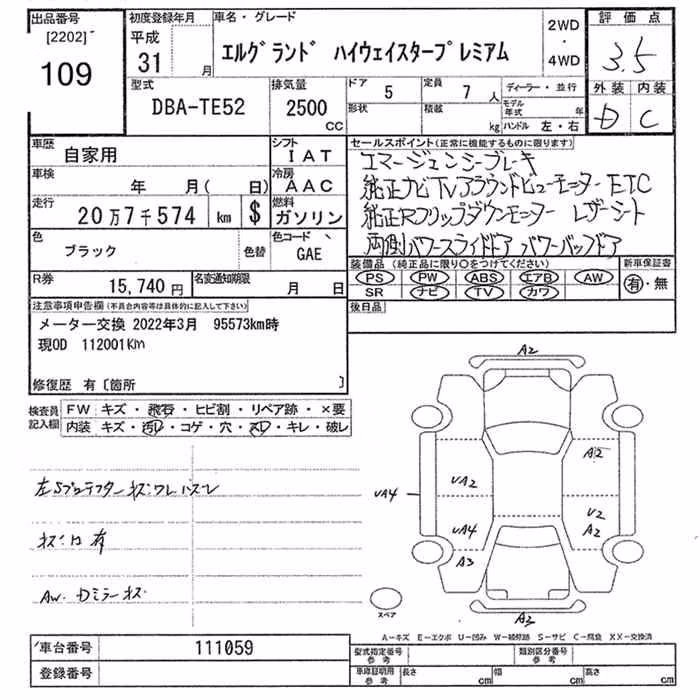 出品番号
[2202]
109
初度登録年月
平成
31 月
車名・グレード
エルグランド ハイウェイスタープレミアム
2WD
・
4WD
評価点
3.5
外装 内装
D C
型式
DBA-TE52
排気量
2500
CC
ドア
5
定員
7 人
形状
積載
kg
ディーラー・並行
モデル年式 年
ハンドル 左・右
車歴
自家用
シフト
IAT
車検
年 月( 日)
冷房
AAC
走行
20万7千574 km $
燃料
ガソリン
色
ブラック
色替
色コード
GAE
R券
15,740円
名変通知期限
月 日
セールスポイント(正常に機能するものに限ります)
エマージェンシーブレーキ
純正ナビTVアラウンドビューモニター ETC
純正Rフリップダウンモニター レザーシート
両側パワースライドドア パワーバックドア
装備品(純正品に限り○をつけてください)
PS PW ABS エアB AW
SR ナビ TV カワ
新車保証書
有・無
後日品
注意事項申告欄(不具合内容等は具体的に記入して下さい)
メーター交換 2022年3月 95573km時
現OD 112001Km
修復歴 有〔箇所 〕
検査員
記入欄
FW:キズ・飛石・ヒビ割・リペア跡・×要
内装:キズ・汚レ・コゲ・穴・スレ・キレ・破レ
左Sプロテクター キズ・ワレ ハズレ
キズ・凹 有
AW. Dミラーキズ
A2
A2
UA2
UA4
UA4
U2
A2
A3
A3
スペア
A-キズ E-エクボ U-凹み W-補修跡 S-サビ C-腐食 XX-交換済
車台番号
111059
登録番号
型式指定番号
参考
類別区分番号
参考
車庫証明用
参考
長さ cm
幅 cm
高さ cm